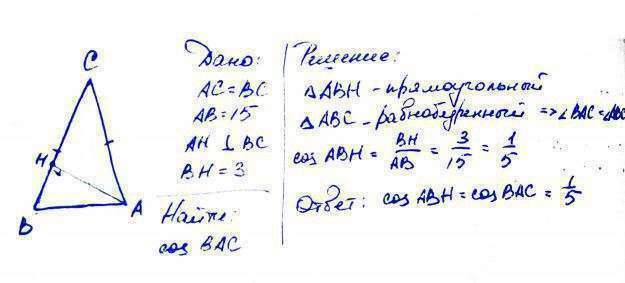 C
H
B
A
Дано:
AC = BC
AB = 15
AH ⊥ BC
BH = 3
Найти:
cos BAC
Решение:
△ABH - прямоугольный
△ABC - равнобедренный => ∠BAC = ∠ABC
cos ABH = BH/AB = 3/15 = 1/5
Ответ: cos ABH = cos BAC = 1/5